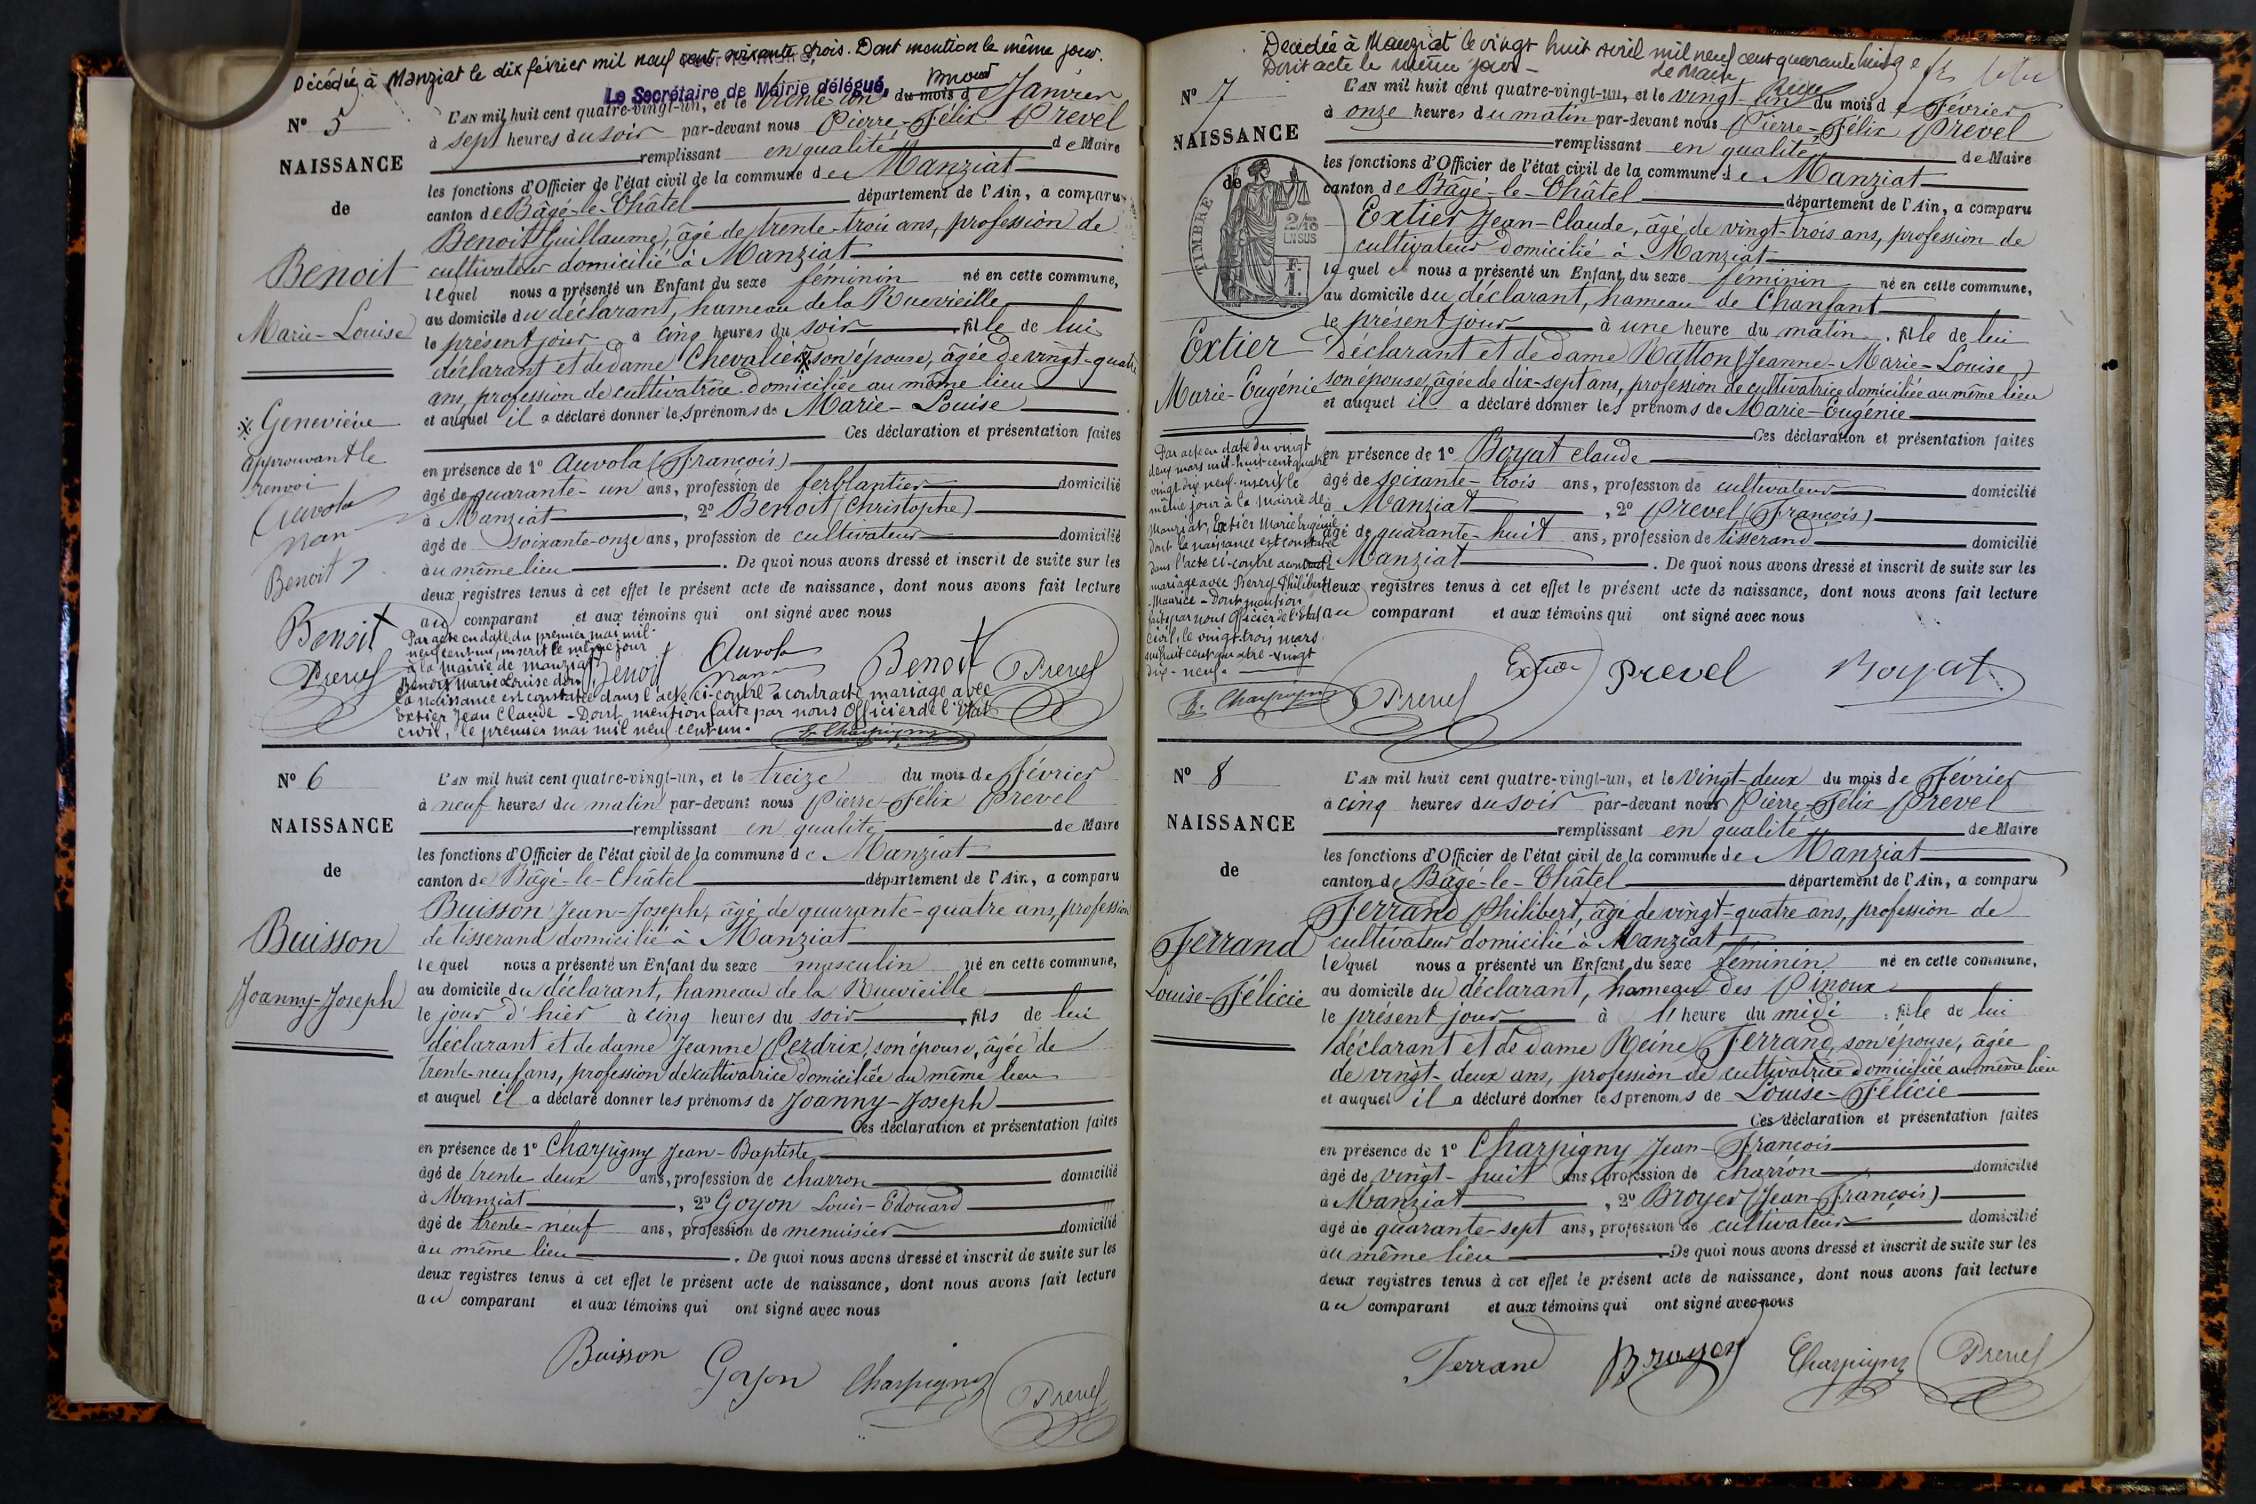 Décédée à Manziat le dix février mil neuf cent soixante trois. Dont mention le même jour.
Le Secrétaire de Mairie délégué,
N° 5
NAISSANCE
de
Benoit
Marie-Louise
※ Geneviève
approuvant le
renvoi
Auvola
nan
Benoit
Benoit
Prevel
L'AN mil huit cent quatre-vingt-un, et le trente-un du mois de Janvier
à sept heures du soir par-devant nous Pierre-Félix Prevel
remplissant en qualité de Maire
les fonctions d'Officier de l'état civil de la commune de Manziat
canton de Bâgé-le-Châtel département de l'Ain, a comparu
Benoit Guillaume, âgé de trente-trois ans, profession de
cultivateur domicilié à Manziat
lequel nous a présenté un Enfant du sexe féminin né en cette commune,
au domicile du déclarant, hameau de la Ruevieille
le présent jour à cinq heures du soir fille de lui
déclarant et de dame Chevalier ※ son épouse, âgée de vingt-quatre
ans, profession de cultivatrice domiciliée au même lieu
et auquel il a déclaré donner les prénoms de Marie-Louise
Ces déclaration et présentation faites
en présence de 1° Auvola (François)
âgé de quarante-un ans, profession de ferblantier domicilié
à Manziat, 2° Benoit (Christophe)
âgé de soixante-onze ans, profession de cultivateur domicilié
au même lieu. De quoi nous avons dressé et inscrit de suite sur les
deux registres tenus à cet effet le présent acte de naissance, dont nous avons fait lecture
au comparant et aux témoins qui ont signé avec nous
Par acte en date du premier mai mil
neuf cent un, inscrit le même jour
à la Mairie de Manziat
Benoit Marie Louise dont
la naissance est constatée dans l'acte ci-contre a contracté mariage avec
Extier Jean Claude - Dont mention faite par nous Officier de l'Etat
civil, le premier mai mil neuf cent un.
Benoit Auvola nan Benoit Prevel
Charpigny
N° 6
NAISSANCE
de
Buisson
Joanny-Joseph
L'AN mil huit cent quatre-vingt-un, et le treize du mois de Février
à neuf heures du matin par-devant nous Pierre-Félix Prevel
remplissant en qualité de Maire
les fonctions d'Officier de l'état civil de la commune de Manziat
canton de Bâgé-le-Châtel département de l'Ain, a comparu
Buisson Jean-Joseph, âgé de quarante-quatre ans, profession
de tisserand domicilié à Manziat
lequel nous a présenté un Enfant du sexe masculin né en cette commune,
au domicile du déclarant, hameau de la Ruevieille
le jour d'hier à cinq heures du soir, fils de lui
déclarant et de dame Jeanne Perdrix, son épouse, âgée de
trente-neuf ans, profession de cultivatrice domiciliée au même lieu
et auquel il a déclaré donner les prénoms de Joanny-Joseph
Ces déclaration et présentation faites
en présence de 1° Charpigny Jean-Baptiste
âgé de trente deux ans, profession de charron domicilié
à Manziat, 2° Goyon Louis-Edouard
âgé de trente-neuf ans, profession de menuisier domicilié
au même lieu. De quoi nous avons dressé et inscrit de suite sur les
deux registres tenus à cet effet le présent acte de naissance, dont nous avons fait lecture
au comparant et aux témoins qui ont signé avec nous
Buisson Goyon Charpigny Prevel
Décédée à Manziat le vingt huit avril mil neuf cent quarante huit
Dont acte le même jour -
le Maire
N° 7
NAISSANCE
de
TIMBRE
2/10
EN SUS
F.
1.
Extier
Marie-Eugénie
Par acte en date du vingt
deux mars mil-huit-cent quatre
vingt dix-neuf-inscrit le
même jour à la Mairie de
Manziat, Extier Marie Eugénie
dont la naissance est constatée
dans l'acte ci-contre a contracté
mariage avec Pierry Philibert
Maurice - Dont mention
faite par nous Officier de l'Etat
civil, le vingt-trois mars
mil huit cent quatre-vingt
dix-neuf.
Charpigny
L'AN mil huit cent quatre-vingt-un, et le vingt-un du mois de Février
à onze heures du matin par-devant nous Pierre-Félix Prevel
remplissant en qualité de Maire
les fonctions d'Officier de l'état civil de la commune de Manziat
canton de Bâgé-le-Châtel département de l'Ain, a comparu
Extier Jean-Claude, âgé de vingt-trois ans, profession de
cultivateur domicilié à Manziat
lequel nous a présenté un Enfant du sexe féminin né en cette commune,
au domicile du déclarant, hameau de Chanfant
le présent jour à une heure du matin, fille de lui
déclarant et de dame Ratton (Jeanne-Marie-Louise)
son épouse, âgée de dix-sept ans, profession de cultivatrice domiciliée au même lieu
et auquel il a déclaré donner les prénoms de Marie-Eugénie
Ces déclaration et présentation faites
en présence de 1° Boyat claude
âgé de soixante-trois ans, profession de cultivateur domicilié
à Manziat, 2° Prevel (François)
âgé de quarante-huit ans, profession de tisserand domicilié
à Manziat. De quoi nous avons dressé et inscrit de suite sur les
deux registres tenus à cet effet le présent acte de naissance, dont nous avons fait lecture
au comparant et aux témoins qui ont signé avec nous
Prevel Extier Prevel Boyat
N° 8
NAISSANCE
de
Ferrand
Louise-Félicie
L'AN mil huit cent quatre-vingt-un, et le Vingt-deux du mois de Février
à cinq heures du soir par-devant nous Pierre-Félix Prevel
remplissant en qualité de Maire
les fonctions d'Officier de l'état civil de la commune de Manziat
canton de Bâgé-le-Châtel département de l'Ain, a comparu
Ferrand Philibert, âgé de vingt-quatre ans, profession de
cultivateur domicilié à Manziat
lequel nous a présenté un Enfant du sexe féminin né en cette commune,
au domicile du déclarant, hameau des Pinoux
le présent jour à 1 heure du midi : fille de lui
déclarant et de dame Reine Ferrand, son épouse, âgée
de vingt-deux ans, profession de cultivatrice domiciliée au même lieu
et auquel il a déclaré donner les prénoms de Louise-Félicie
Ces déclaration et présentation faites
en présence de 1° Charpigny Jean-François
âgé de vingt-huit ans, profession de charron domicilié
à Manziat, 2° Broyer (Jean-François)
âgé de quarante-sept ans, profession de cultivateur domicilié
au même lieu. De quoi nous avons dressé et inscrit de suite sur les
deux registres tenus à cet effet le présent acte de naissance, dont nous avons fait lecture
au comparant et aux témoins qui ont signé avec nous
Ferrand Broyer Charpigny Prevel